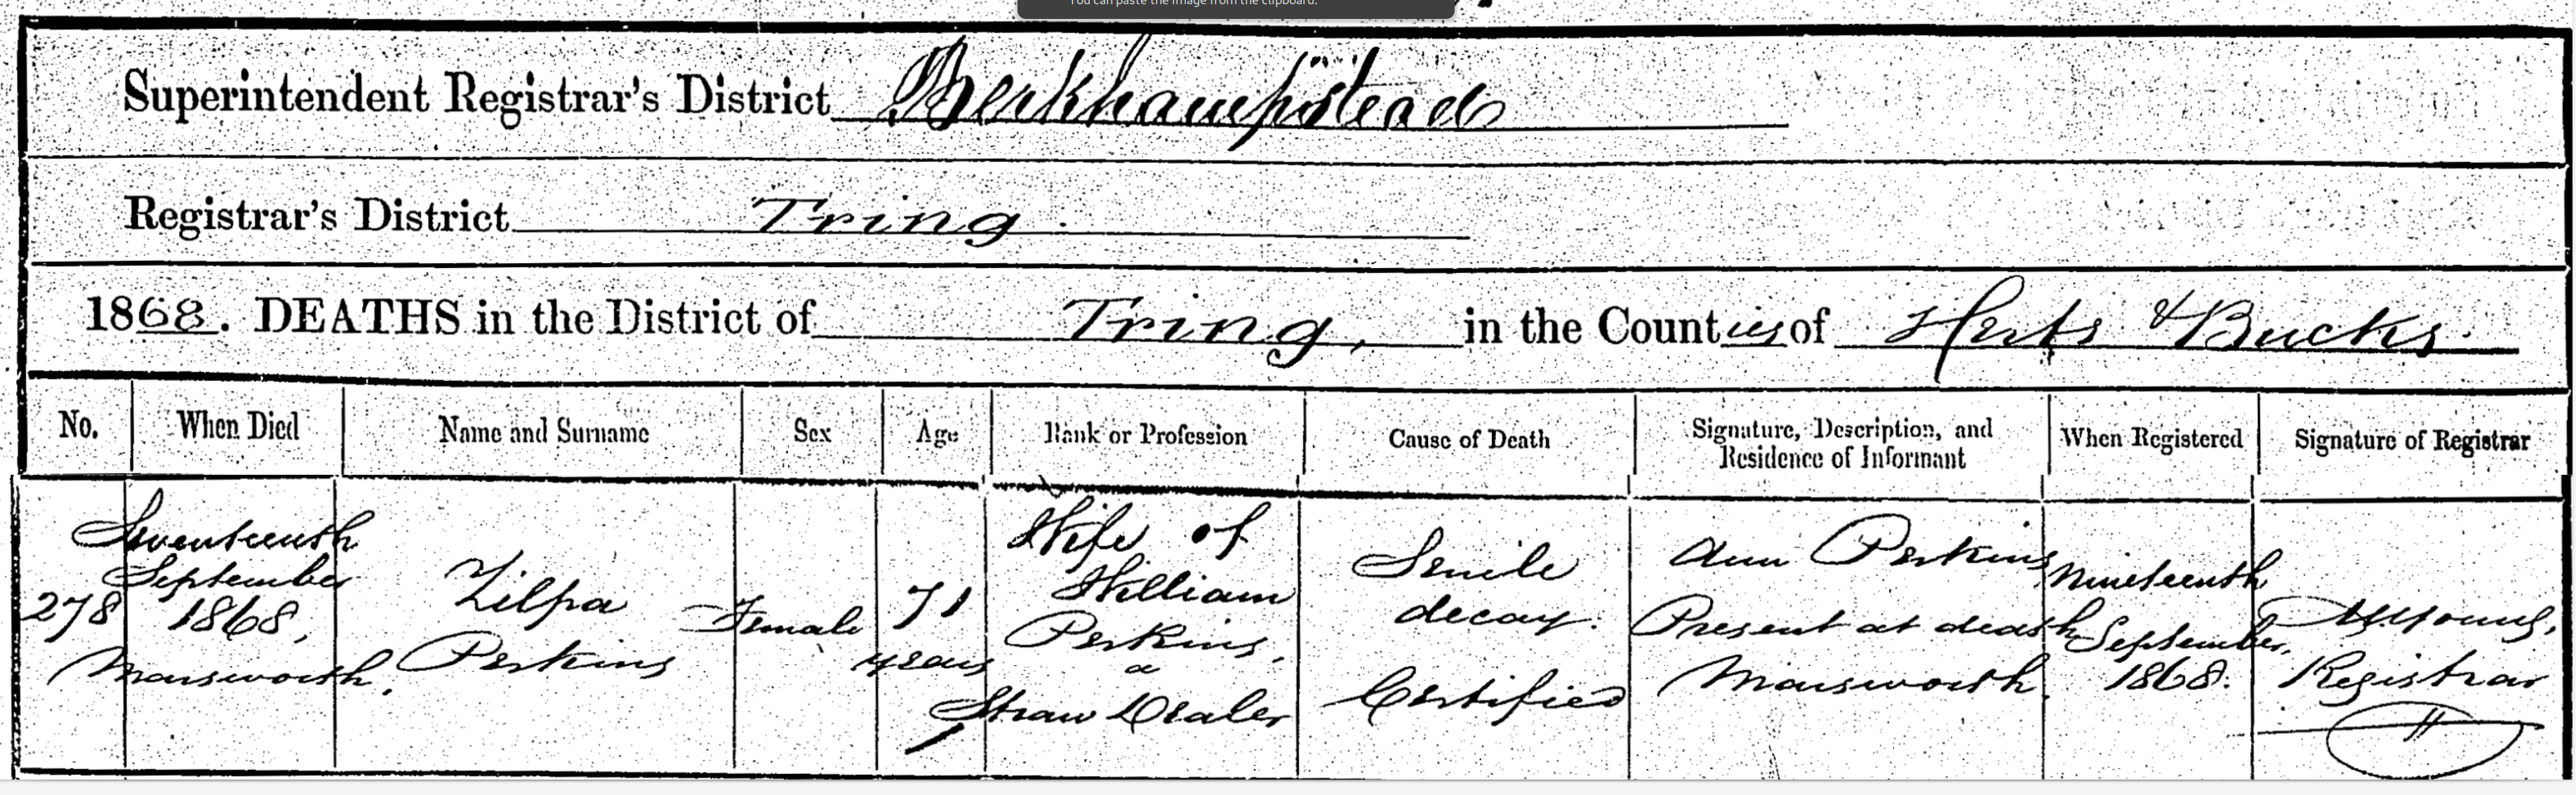 You can paste the image from the clipboard.
Superintendent Registrar's District Berkhampstead
Registrar's District Tring.
1868. DEATHS in the District of Tring, in the Counties of Herts & Bucks.
No.
When Died
Name and Surname
Sex
Age
Rank or Profession
Cause of Death
Signature, Description, and
Residence of Informant
When Registered
Signature of Registrar
278
Seventeenth
September
1868,
Marsworth.
Zilpa
Perkins
Female
71
years
Wife of
William
Perkins,
a
Straw Dealer
Senile
decay.
Certified
Ann Perkins
Present at death
Marsworth.
Nineteenth
September,
1868.
Registrar